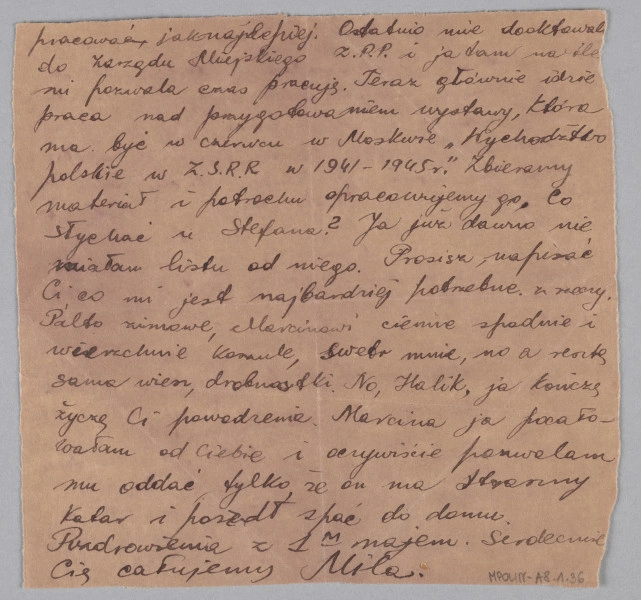 pracować, jaknajlepiej. Ostatnio mnie dooktowali
do Zarządu Miejskiego Z.P.P. i ja tam na ile
mi pozwala czas pracuję. Teraz głównie idzie
praca nad przygotowaniem wystawy, która
ma być w czerwcu w Moskwie „Wychodźtwo
polskie w Z.S.R.R w 1941-1945r." Zbieramy
materiał i potrochu opracowujemy go. Co
słychać u Stefana? Ja już dawno nie
miałam listu od niego. Prosisz napisać
Ci co mi jest najbardziej potrzebne z rzeczy.
Palto zimowe, Marcinowi ciemne spodnie i
wierzchnie koszule, swetr mnie, no a resztę
sama wiesz, drobnostki. No, Halik, ja kończę
życzę Ci powodzenia. Marcina ja pocało-
wałam od Ciebie i oczywiście pozwalam
mu oddać tylko, że on ma straszny
katar i poszedł spać do domu.
Pozdrowienia z 1ᴹ majem. Serdecznie
Cię całujemy Mila.
MPOLIN-A8.1.36